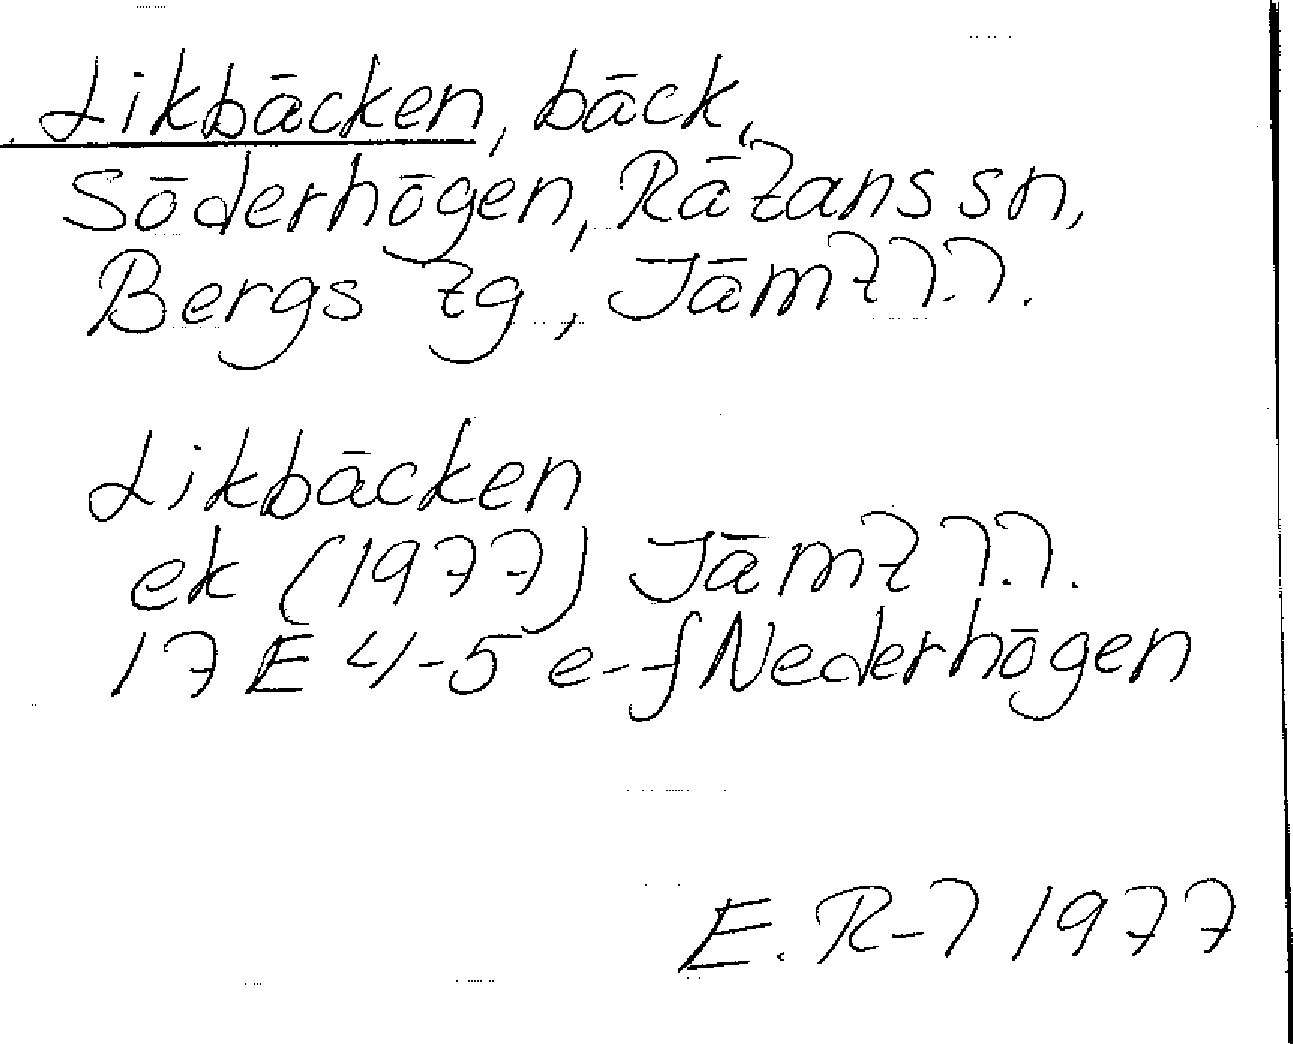 Likbäcken, bäck,
Söderhögen, Rätans sn,
Bergs tg, Jämtl.l.
Likbäcken
ek (1977) Jämtl.l.
17 E 4-5 e-f Nederhögen
E. R-l 1977